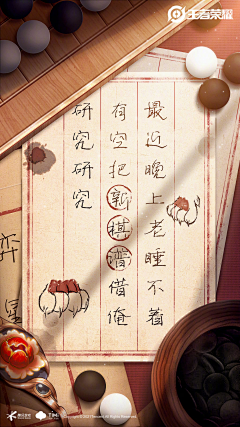 王者荣耀
最近晚上老睡不着
有空把新棋谱借俺
研究研究
弈星